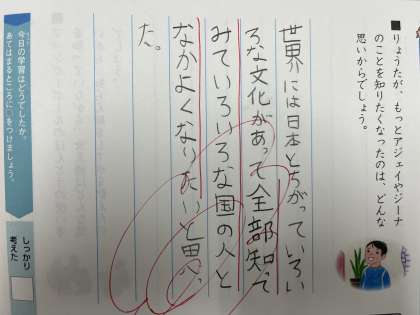 ■りょうたが、もっとアジェイやジーナ
のことを知りたくなったのは、どんな
思いからでしょう。
世界には日本とちがっていろい
ろな文化があって全部知って
みていろいろな国の人と
なかよくなりたいと思っ
た。
今日の学習はどうでしたか。
あてはまるところに○をつけましょう。
しっかり
考えた